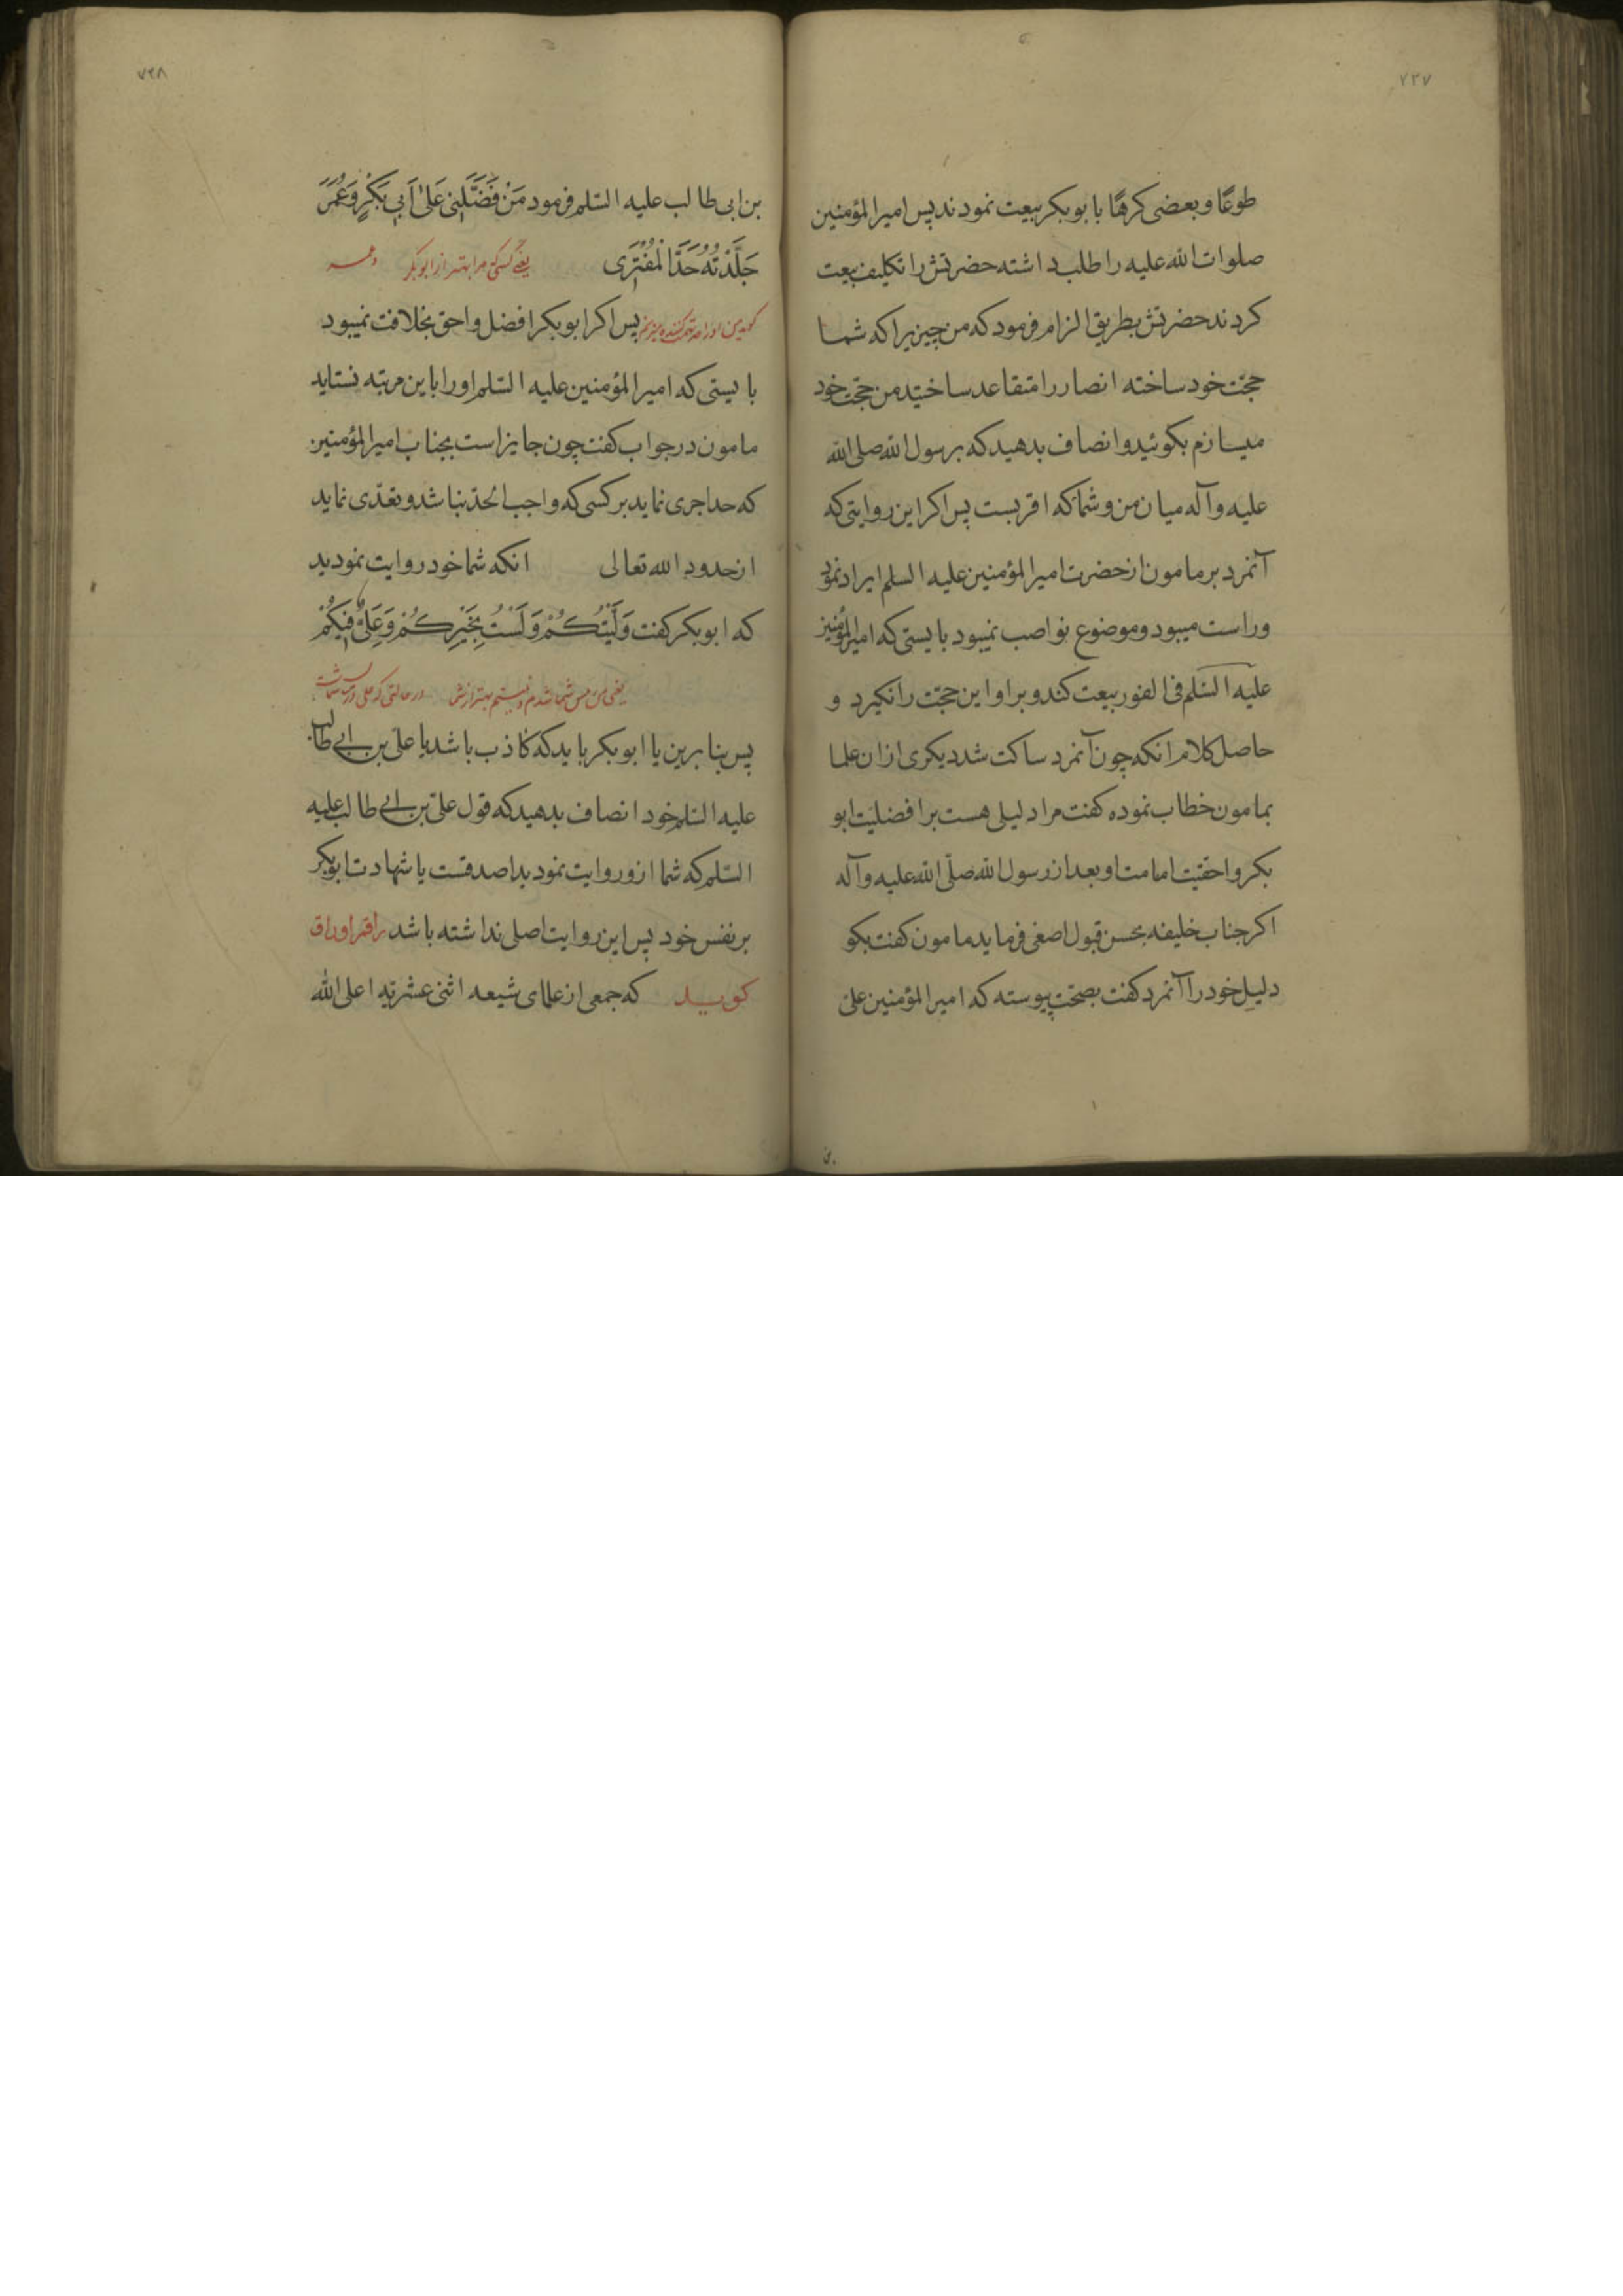 ۷۳۷
طوعًا و بعضی کرهًا با بوبکر بیعت نمودند پس امیرالمؤمنین
صلوات الله علیه را طلب داشته حضرتش را تکلیف بیعت
کردند حضرتش بطریق الزام فرمود که من چیزیرا که شما
حجّت خود ساخته انصار را متقاعد ساختید من حجّت خود
میسازم بکوئید و انصاف بدهید که برسول الله صلی الله
علیه وآله میان من و شما که اقربست پس اکر این روایتی که
آنمرد بر مامون از حضرت امیرالمؤمنین علیه السلم ایراد نمود
و راست میبود و موضوع نواصب نمیبود بایستی که امیرالمؤمنین
علیه السّلم فی الفور بیعت کند و بر او این حجّت را نکیرد و
حاصل کلام انکه چون آنمرد ساکت شد دیکری از ان علما
بمامون خطاب نموده کفت مرا دلیلی هست بر افضلیّت ابو
بکر و احقیّت امامت او بعد از رسول الله صلّی الله علیه وآله
اکر جناب خلیفه بحسن قبول اصغی فرماید مامون کفت بکو
دلیل خود را آنمرد کفت بصحّت پیوسته که امیرالمؤمنین علیّ
۷۳۸
بن ابی طالب علیه السّلم فرمود مَنْ فَضَّلَنِی عَلیٰ اَبِی بَکْرٍ وَعُمَرَ
جَلَّدْتُهُ حَدَّ الْمُفْتَرِی یعنی کسی که مرا بهتر از ابوبکر و عمر
پس اکر ابوبکر افضل و احق بخلافت نمیبود
بایستی که امیرالمؤمنین علیه السّلم او را باین مرتبه نستاید
مامون در جواب کفت چون جایز است بجناب امیرالمؤمنین
که حد اجری نماید بر کسی که واجب الحدّ نباشد و تعدّی نماید
از حدود الله تعالی انکه شما خود روایت نمودید
که ابوبکر کفت وَلَّیْتُکُمْ وَلَسْتُ بِخَیْرِکُمْ وَعَلِیٌّ فِیکُمْ
یعنی من شما شدم و نیستم بهتر از شما در حالتی که علی در میان شماست
پس بنا برین یا ابوبکر باید که کاذب باشد یا علیّ بن ابی طالب
علیه السّلم خود انصاف بدهید که قول علیّ بن ابی طالب علیه
السّلم که شما ازو روایت نمودید اصدقست یا شهادت ابوبکر
بر نفس خود پس این روایت اصلی نداشته باشد راقم اوراق
کوید که جمعی از علمای شیعه اثنی عشریّه اعلی الله